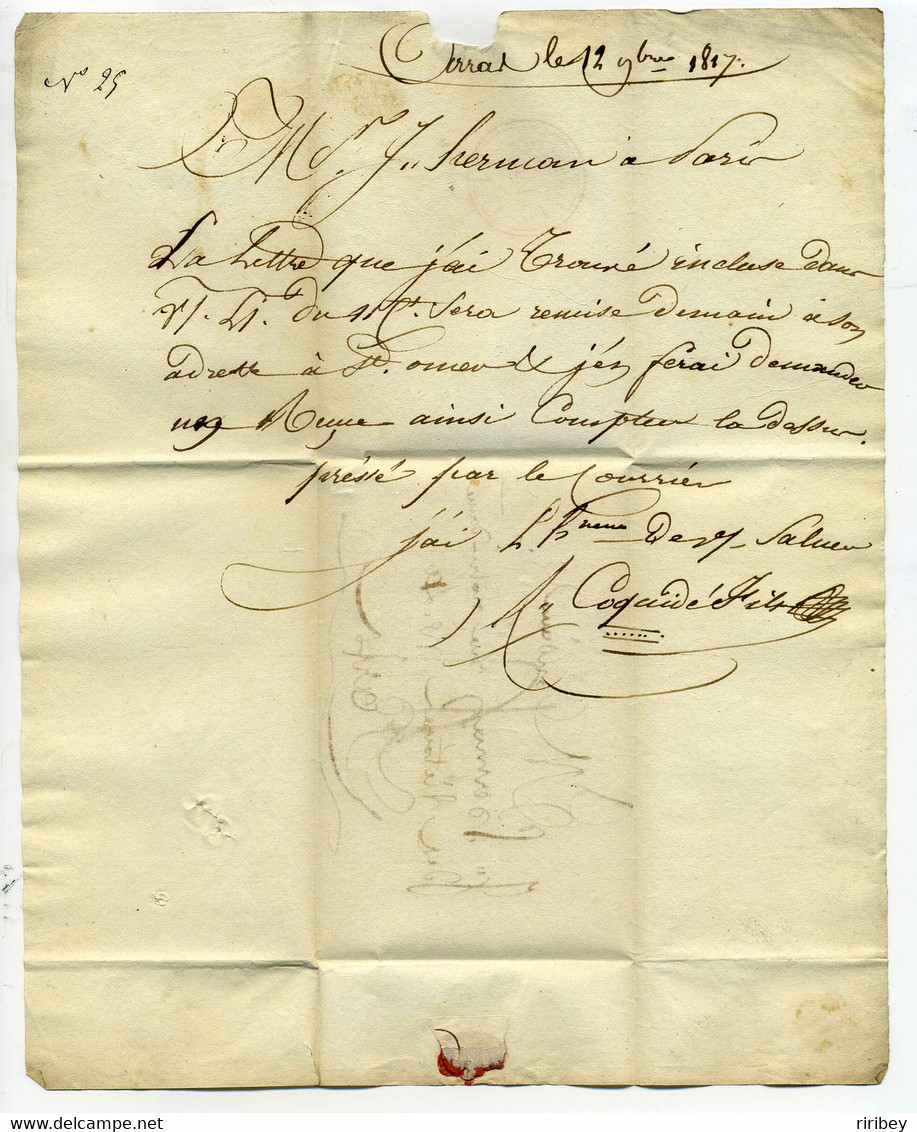 Arras le 12 9bre 1817.
N° 25
Mr. J. herman à Paris
La Lettre que j'ai Trouvé incluse dans
V/. Lt. du 11 Ct. Sera remise Demain à son
adresse à St. omer & j'en ferai demander
un Reçu ainsi Compter la dessus.
préssé par le Courrier
j'ai L'hneur De V/ Saluer
Coquidé Fils
riribey